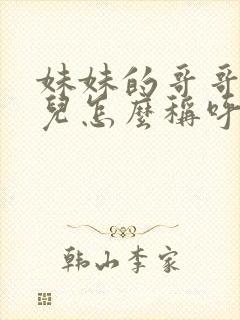 妹妹的哥哥
兒怎麼稱呼
韩山李家